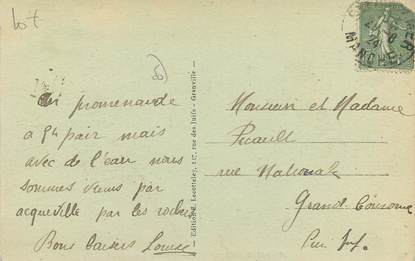 lot
MANCHE
En promenade
a St pair mais
avec de l'eau nous
sommes venus par
acqueville par les rochers
Bons baisers Louise
Edition E. Lecotteley, rue des Juifs - Granville
Monsieur et Madame
Picault
rue Nationale
Grand Couronne
Sein Inf.